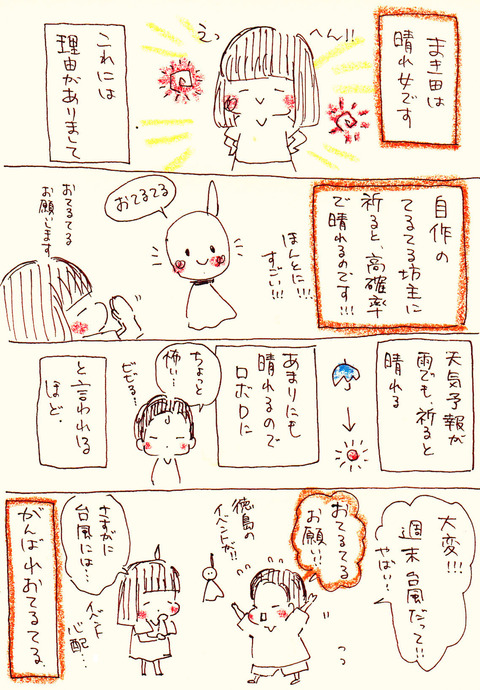 まき田は
晴れ女です
へん!!
えっ
これには
理由がありまして
自作の
てるてる坊主に
祈ると、高確率
で晴れるのです!!!
ほんとに!!
すごい!!!
おてるてる
おてるてる
お願いします
天気予報が
雨でも、祈ると
晴れる
あまりにも
晴れるので
ロボロに
ちょっと
怖い…
ビビる…
と言われる
ほど.
大変!!!
週末台風だって!!
やばい…
おてるてる
お願い!!
徳島の
イベントが!!
さすがに
台風には…
イベント
心配…
がんばれおてるてる.